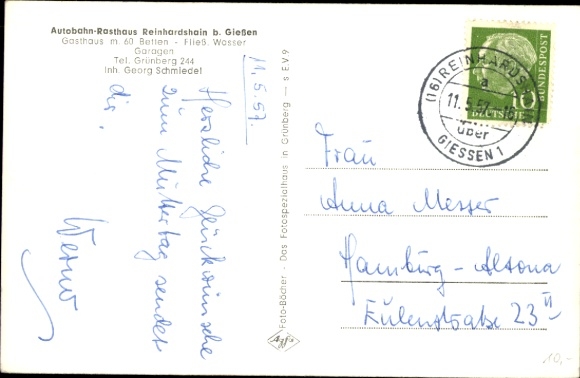 Autobahn-Rasthaus Reinhardshain b. Gießen
Gasthaus m. 60 Betten - Fließ. Wasser
Garagen
Tel. Grünberg 244
Inh. Georg Schmiedel
11.5.57.
Herzliche Glückwünsche
zum Muttertag sendet
dir,
Werner
Foto-Bächer - Das Fotospezialhaus in Grünberg — s EV 9
Agfa
DEUTSCHE
BUNDESPOST
10
(16) REINHARDSHAIN
a
11.5.57
über
GIESSEN 1
Frau
Anna Messer
Hamburg - Altona
Eulenstraße 23 II
10,-